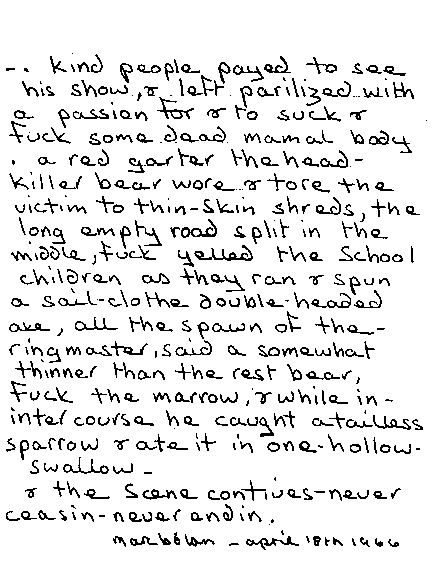 -. kind people payed to see
his show, & left parilized with
a passion for & to suck &
fuck some dead mamal body
. a red garter the head-
killer bear wore & tore the
victim to thin-skin shreds, the
long empty road split in the
middle, fuck yelled the school
children as they ran & spun
a sail-clothe double-headed
axe, all the spawn of the-
ringmaster, said a somewhat
thinner than the rest bear,
fuck the marrow, & while in-
intercourse he caught a tailless
sparrow & ate it in one-hollow-
swallow-
& the scene contives-never
ceasin-never endin.
marc bolan - april 18th 1966